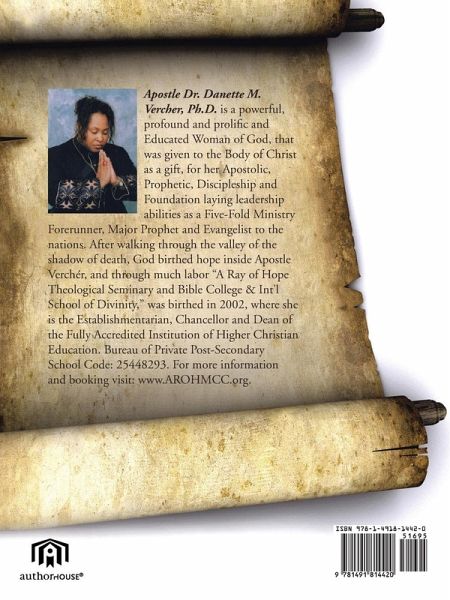 Apostle Dr. Danette M.
Vercher, Ph.D. is a powerful,
profound and prolific and
Educated Woman of God, that
was given to the Body of Christ
as a gift, for her Apostolic,
Prophetic, Discipleship and
Foundation laying leadership
abilities as a Five-Fold Ministry
Forerunner, Major Prophet and Evangelist to the
nations. After walking through the valley of the
shadow of death, God birthed hope inside Apostle
Verchér, and through much labor “A Ray of Hope
Theological Seminary and Bible College & Int'l
School of Divinity,” was birthed in 2002, where she
is the Establishmentarian, Chancellor and Dean of
the Fully Accredited Institution of Higher Christian
Education. Bureau of Private Post-Secondary
School Code: 25448293. For more information
and booking visit: www.AROHMCC.org.
ISBN 978-1-4918-1442-0
51695
9 781491 814420
authorHOUSE®